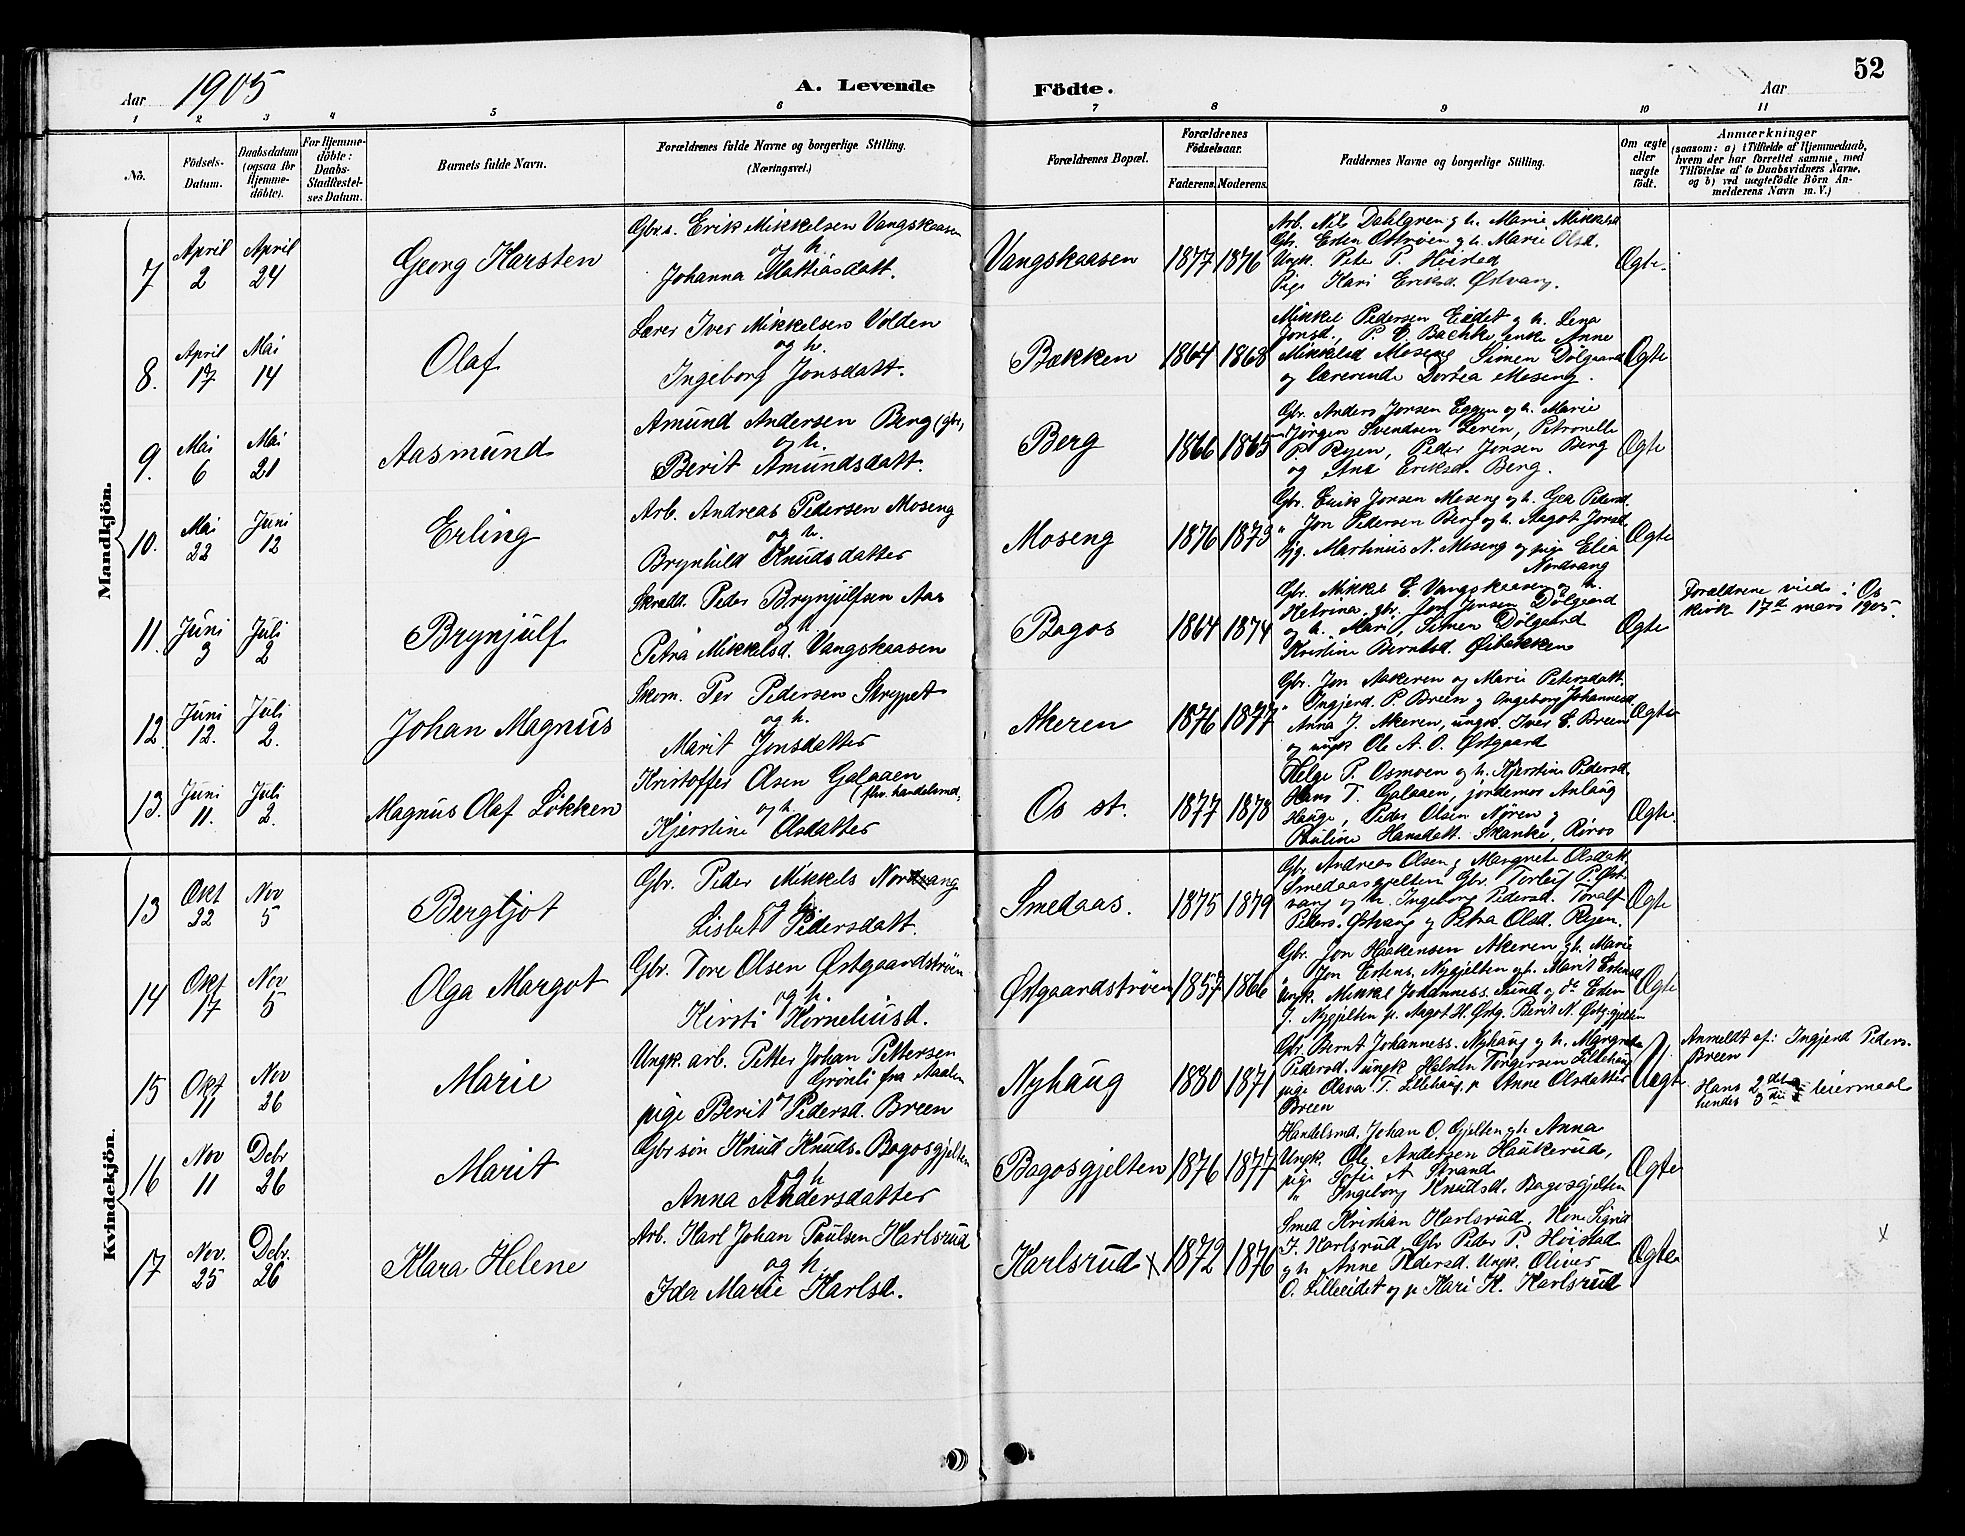 52
Aar 1905 A. Levende Födte. Aar
1 2 3 4 5 6 7 8 9 10 11
No.
Födsels-Datum.
Daabsdatum (ogsaa for Hjemme-döbte).
For Hjemme-döbte: Daabs-Stadfæstel-ses Datum.
Barnets fulde Navn.
Forældrenes fulde Navne og borgerlige Stilling.
(Næringsvei.)
Forældrenes Bopæl.
Forældrenes Födselsaar.
Faderens. Moderens.
Faddernes Navne og borgerlige Stilling.
Om ægte eller uægte födt.
Anmærkninger
(saasom: a) i Tilfælde af Hjemmedaab, hvem der har forrettet samme, med Tilföielse af to Daabsvidners Navne, og b) ved uægtefödte Börn Anmelderens Navn m. V.)
Mandkjön.
7 April 2 April 24 Georg Karsten
Gbrs. Erik Mikkelsen Vangskaasen
og h.
Johanna Mattiasdatt.
Vangskaasen 1877 1876
Arb. Nils Dahlgren og h. Marie Mikkelsd
Gbr. Esten Østrøen og h. Marie Olsd.
Ungk. Peter P. Høistad
Pige Kari Eriksd. Østvang.
Ægte.
8. April 17 Mai 14 Olaf
Lærer Iver Mikkelsen Volden
og h.
Ingeborg Jonsdatt.
Bækken 1864 1868
Mikkel Pedersen Eidet og h. Lena
Jonsd., P. E. Bachke, enke Anne
Mikkelsd Moseng Simen Dølgaard
og lærerinde Dortea Moseng.
Ægte
9. Mai 6 Mai 21 Aasmund
Amund Andersen Berg (gbr,
og h.
Berit Amundsdatt.
Berg 1866 1865
Gbr. Anders Jonsen Eggen og h. Marie
Jørgen Svendsen Leren, Petronelle
P. Ryen, Peder Jonsen Berg
og Ane Eriksd. Berg.
Ægte
10. Mai 22 Juni 12 Erling
Arb. Andreas Pedersen Moseng
og h.
Brynhild Knudsdatter
Moseng 1876 1873
Gbr. Erik Jonsen Moseng og h. Gea Pedersd
" Jon Pedersen Berg og h. Aagot Jonsd
Martinius N. Moseng og pige Elia
Nordvang
Ægte
11. Juni 3 Juli 2 Brynjulf
Skrædd. Peder Brynjulfsen Aas
og h.
Petra Mikkelsd. Vangskaasen
Bagos 1864 1874
Gbr. Mikkel E. Vangskaasen og h.
Katrina, gbr. Jon Jonsen Dølgaard
og h. Marit, Simen Dølgaard
Kristine Berntsd. Øibækken
Ægte
Forældrene viede i Os
kirke 17de mars 1905.
12. Juni 12. Juli 2. Johan Magnus
Skom. Per Pedersen Strypet
og h.
Marit Jonsdatter
Akeren 1876 1877
Gbr. Jon Aakeren og Marie Petersdatt.
" Ingjerd. P. Breen og Ingeborg Johannesd
Anna J. Akeren, ungk. Iver E. Breen
og ungk Ole A. O. Østgaard
Ægte
13. Juni 11. Juli 2. Magnus Olaf Løkken
Kristoffer Olsen Galaaen
(fhv. handelsmd.
og h.
Kjerstine Olsdatter
Os st. 1877 1878
Helge P. Osmoen og h. Kjerstine Pedersd.
Hans T. Galaaen, jordemor Anlaug
Hauge, Peder Olsen Nøren og
Pauline Hansdatt. Skanke, Røros
Ægte.
Kvindekjön.
13 Okt 22 Nov 5 Bergljot
Gbr. Peder Mikkels Nordvang
og h.
Lisbet Pedersdatt.
Smedaas. 1875 1879
Gbr. Andreas Olsen og Margrete Olsdatt.
Smedaasgjelten Gbr. Torleif P. Øst-
vang og h. Ingeborg Pedersd. Toralf
Peders. Østvang og Petra Olsd. Ryen.
Ægte
14 Okt 17 Nov 5 Olga Margot
Gbr. Tore Olsen Østgaardstrøen
og h.
Kirsti Korneliusd.
Østgaardstrøen 1857 1866
Gbr. Jon Haakensen Akeren og h. Marie
" Jon Estens. Nygjelten og h. Marit Estensd
Ungk. Mikkel Johanness. Sund og do Esten
J. Nygjelten p. Aagot H. Østg. Berit N. Østg.gjelten
Ægte
15 Okt 11 Nov 26 Marie
Ungk. arb. Petter Johan Pettersen
Grønli fra Aalen
og
pige Berit Pedersd. Breen
Nyhaug 1880 1871
Gbr Bernt Johanness. Nyhaug og h. Margrete
Pedersd. ungk Halsten Torgersen Lillehaug
pige Olava T. Lillehaug, p Anne Olsdatter
Breen
Uægte
Anmeldt af: Ingjerd Peders.
Breen
Hans 2det
hendes 3die leiermaal
16 Nov 11 Debr 26 Marit
Gbrsøn Knud Knuds. Bagosgjelten
og h
Anna Andersdatter
Bagosgjelten 1876 1877
Handelsmd. Johan O. Gjelten og h. Anna
Ungk. Ole Andersen Haukerud,
pige Sofie A. Strand
" Ingeborg Knudsd. Bagosgjelten
Ægte
17 Nov. 25 Debr. 26 Klara Helene
Arb. Karl Johan Paulsen Karlsrud
og h.
Ida Marie Karlsd.
Karlsrud x 1872 1876
Smed Kristian Karlsrud, Kone Sigrid
J. Karlsrud, Gbr Peder P. Høistad
og h Anne Pedersd. Ungk. Oliver
O. Lilleeidet og p Kari K. Karlsrud
Ægte
x